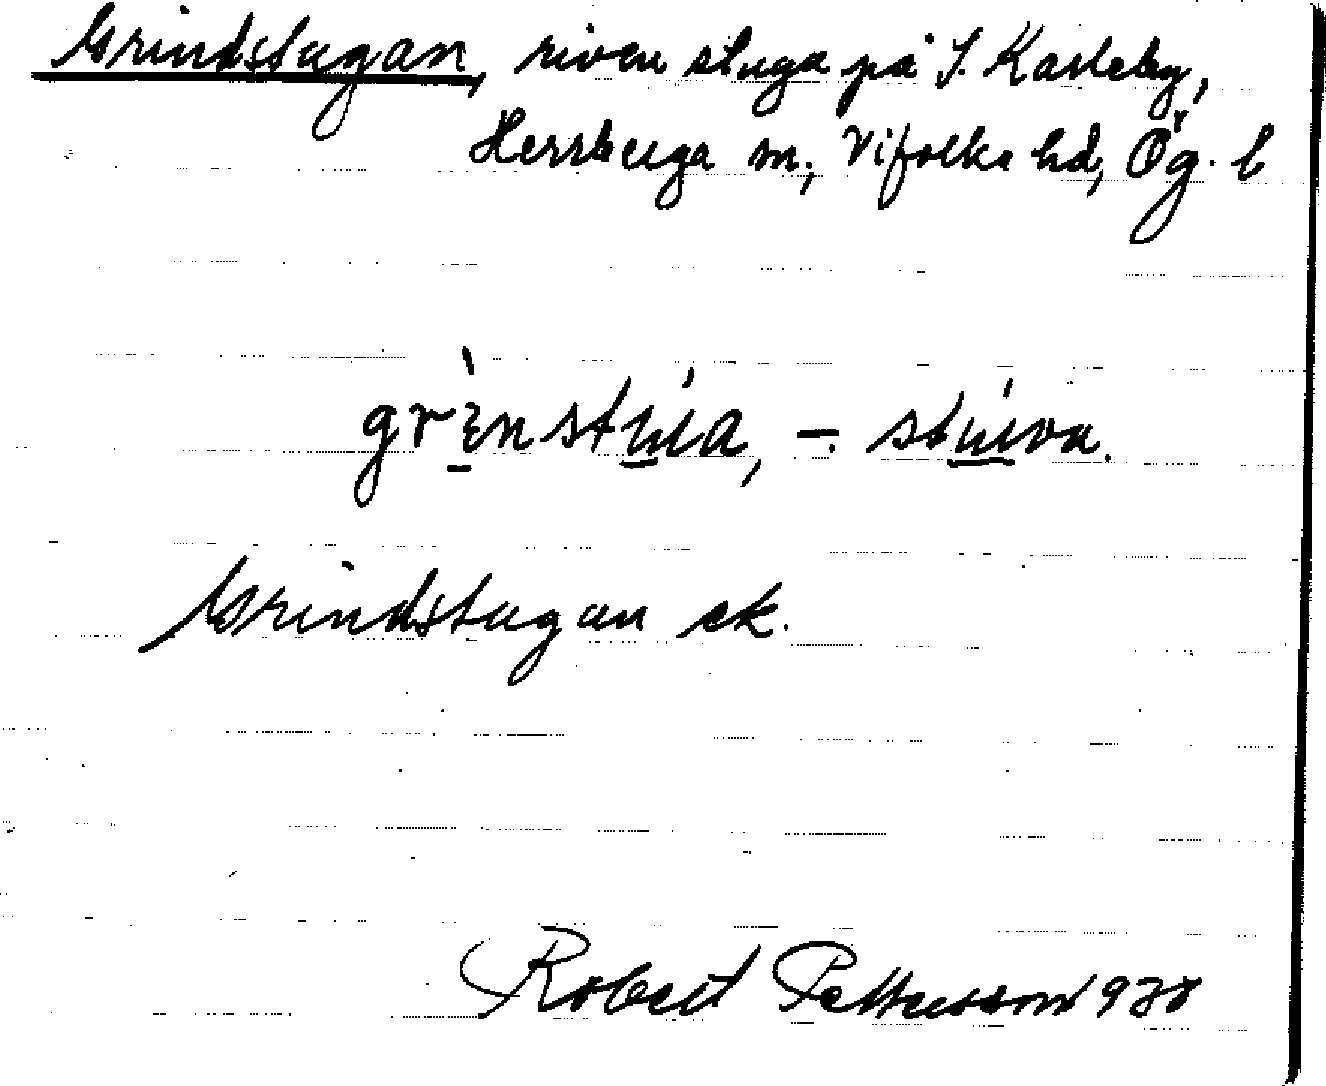 Grindstugan, riven stuga på S. Karleby,
Herrberga sn, Vifolka hd, Ög. l
grènstúa, -stúwa.
Grindstugan ek.
Robert Pettersson 1938